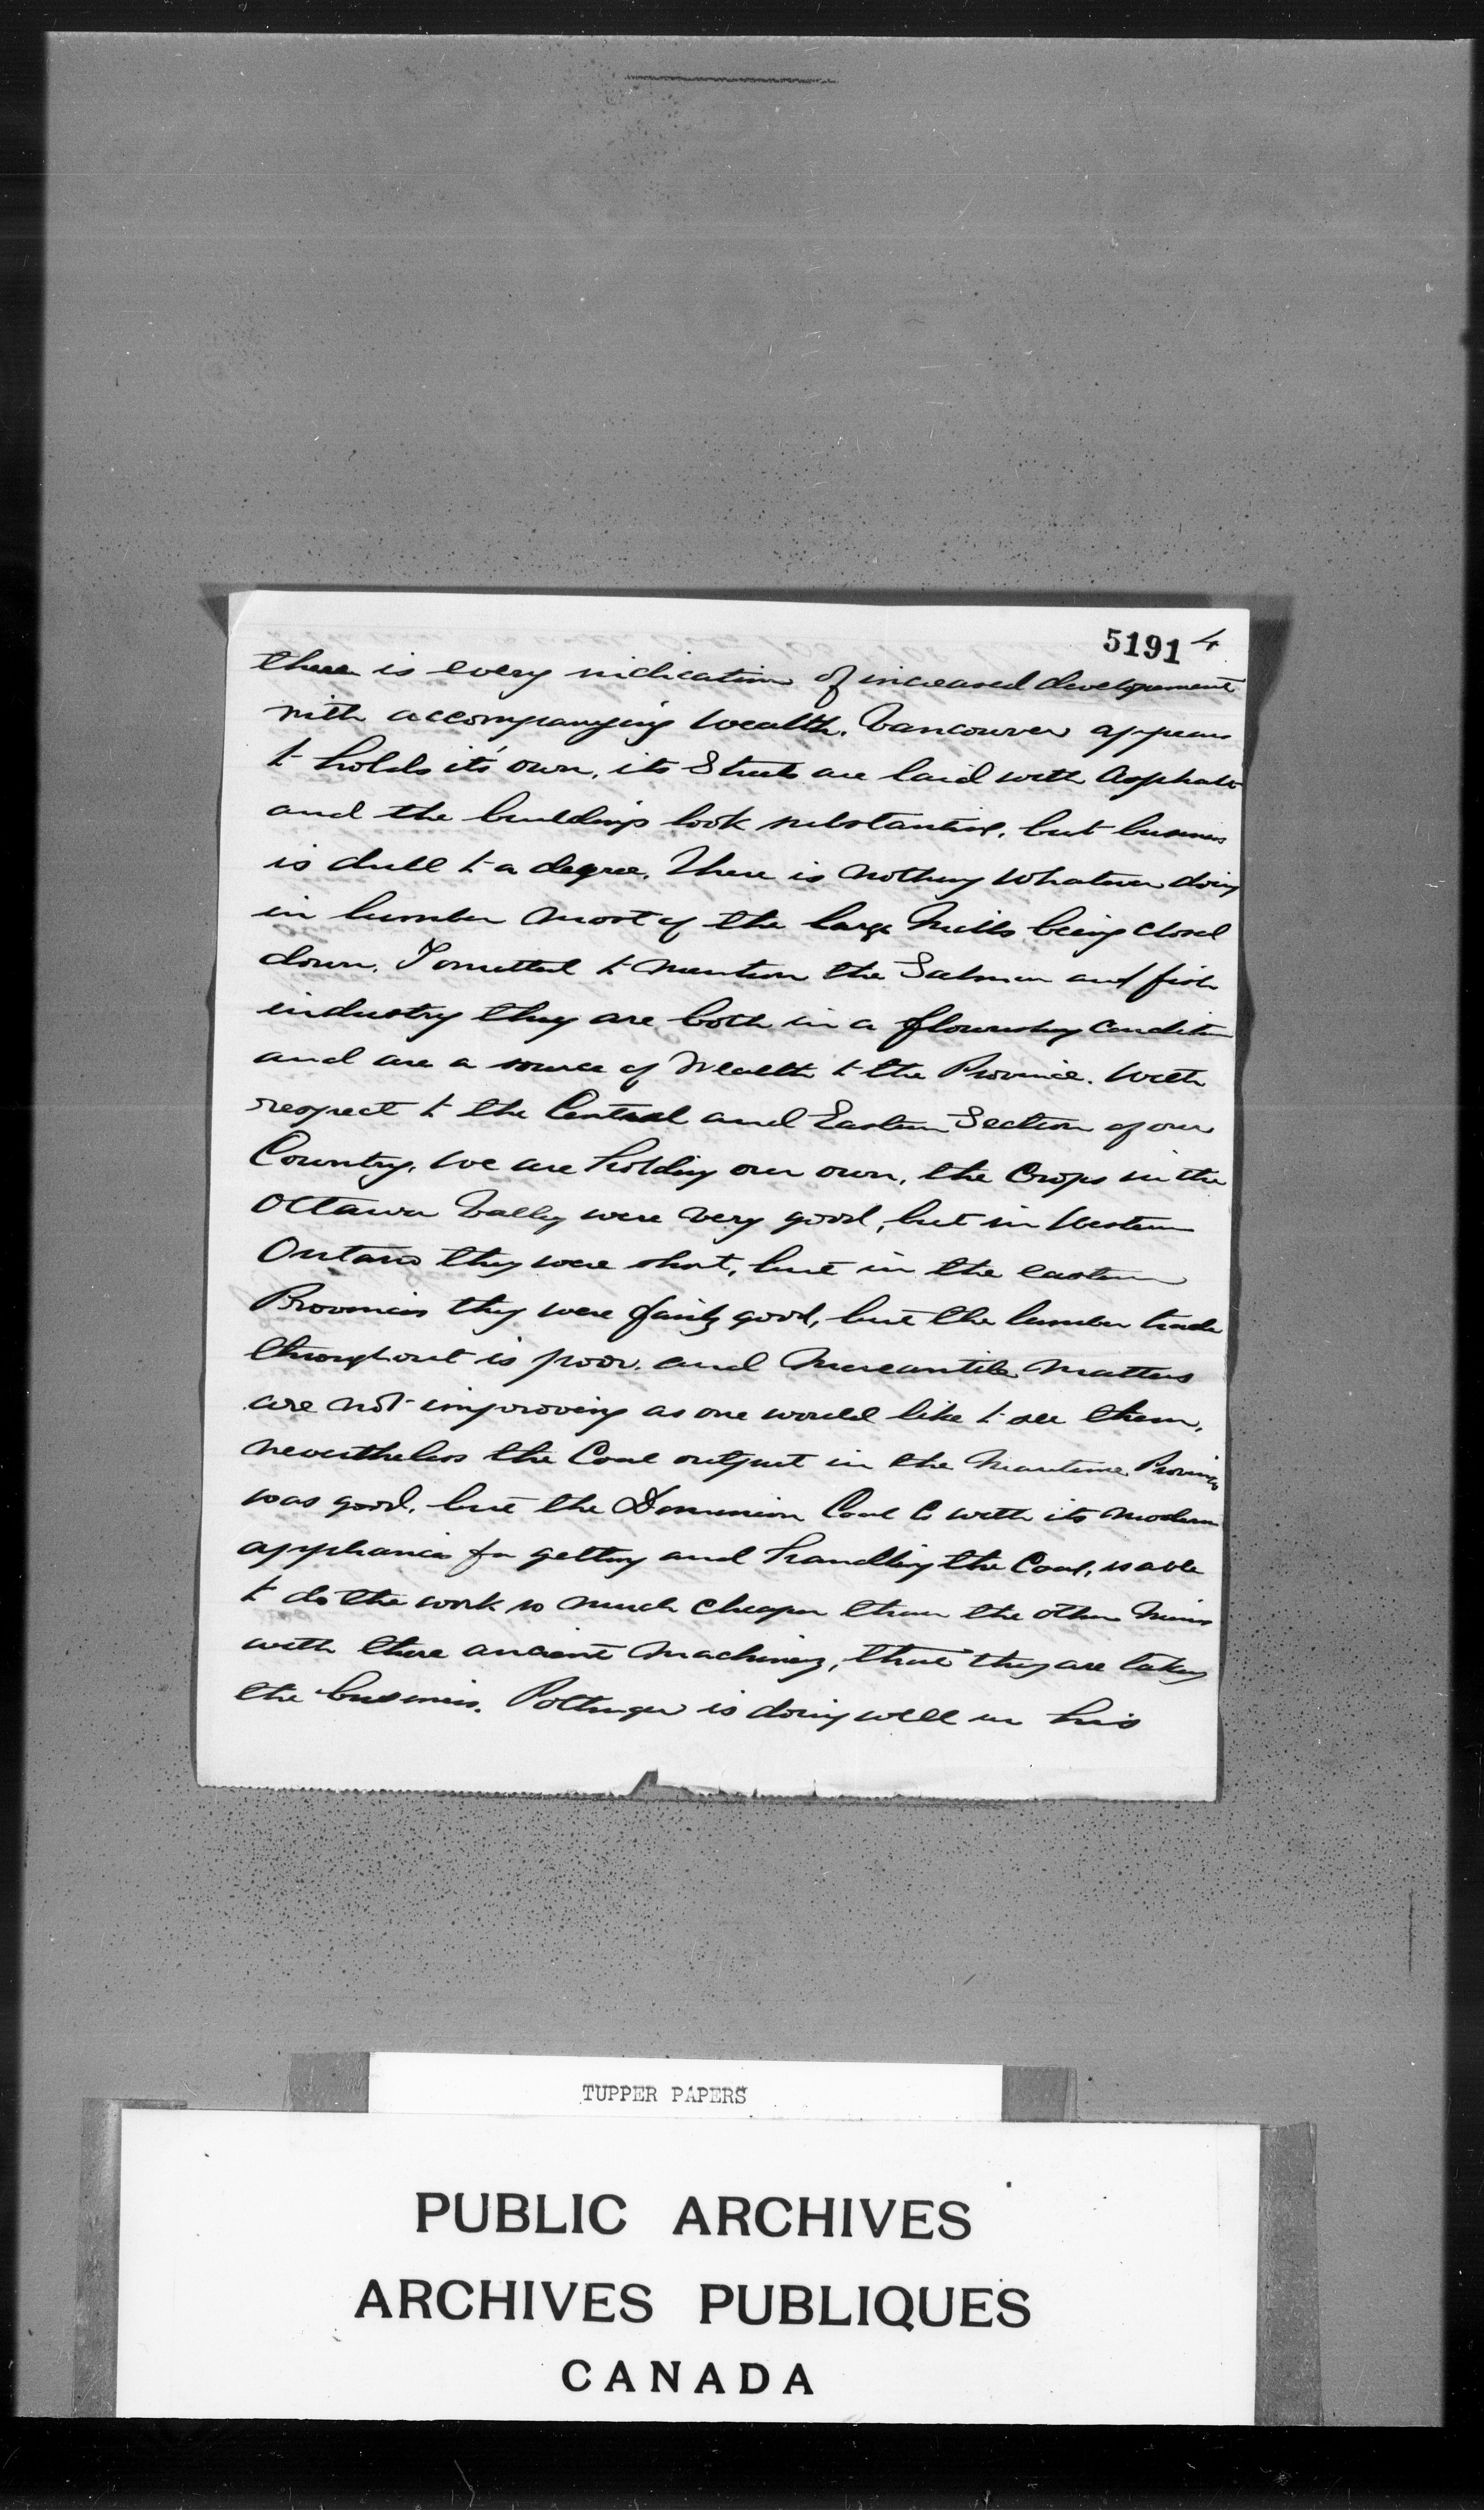 5191 4
there is every indication of increased development
with accompanying wealth. Vancouver appears
to holds it's own, its Streets are laid with Asphalt
and the buildings look substantial, but business
is dull to a degree. There is nothing whatever doing
in lumber most of the large Mills being closed
down. I omitted to mention the Salmon and fish
industry they are both in a flourishing condition
and are a source of Wealth to the Province. With
respect to the Central and Eastern Section of our
Country, we are holding our own, the Crops in the
Ottawa Valley were very good, but in Western
Ontario they were short, but in the eastern
Provinces they were fairly good, but the lumber trade
throughout is poor, and Mercantile Matters
are not improving as one would like to see them,
nevertheless the Coal output in the Maritime Provinces
was good, but the Dominion Coal Co with its modern
appliances for getting and handling the Coal, is able
to do the work so much cheaper than the other Mines
with there ancient Machinery, that they are taking
the business. Pottinger is doing well in his
TUPPER PAPERS
PUBLIC ARCHIVES
ARCHIVES PUBLIQUES
CANADA